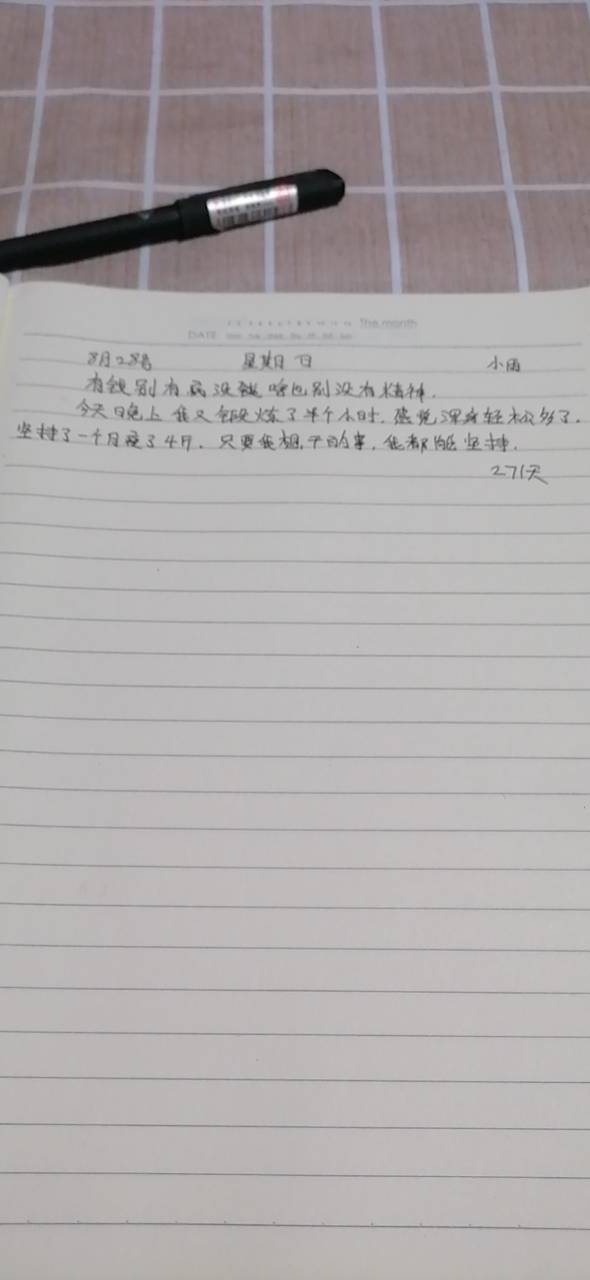 8月28号 星期日 小雨
有钱别有病没钱啥也别没有精神.
今天晚上我又锻炼了半个小时.感觉浑身轻松多了.
坚持了一个月瘦了4斤.只要我想干的事,我都能坚持.
271天
DATE
The month